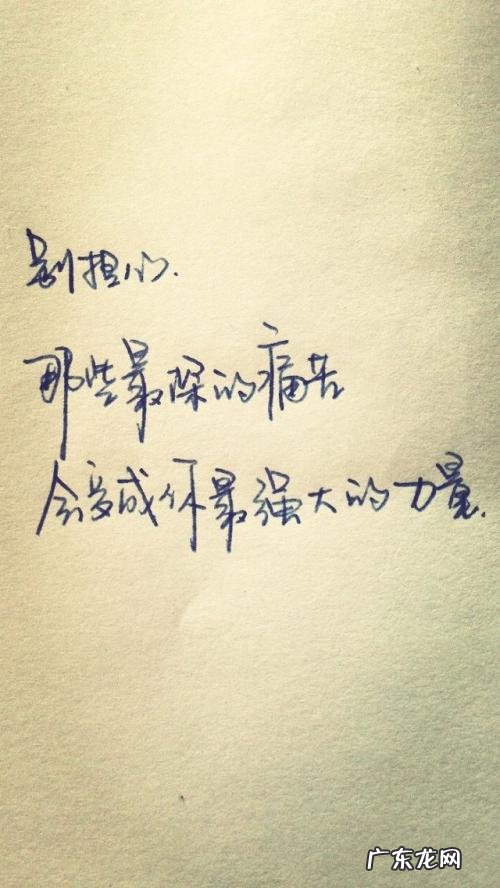 别担心.
那些最深的痛苦
会变成你最强大的力量.
广东龙网